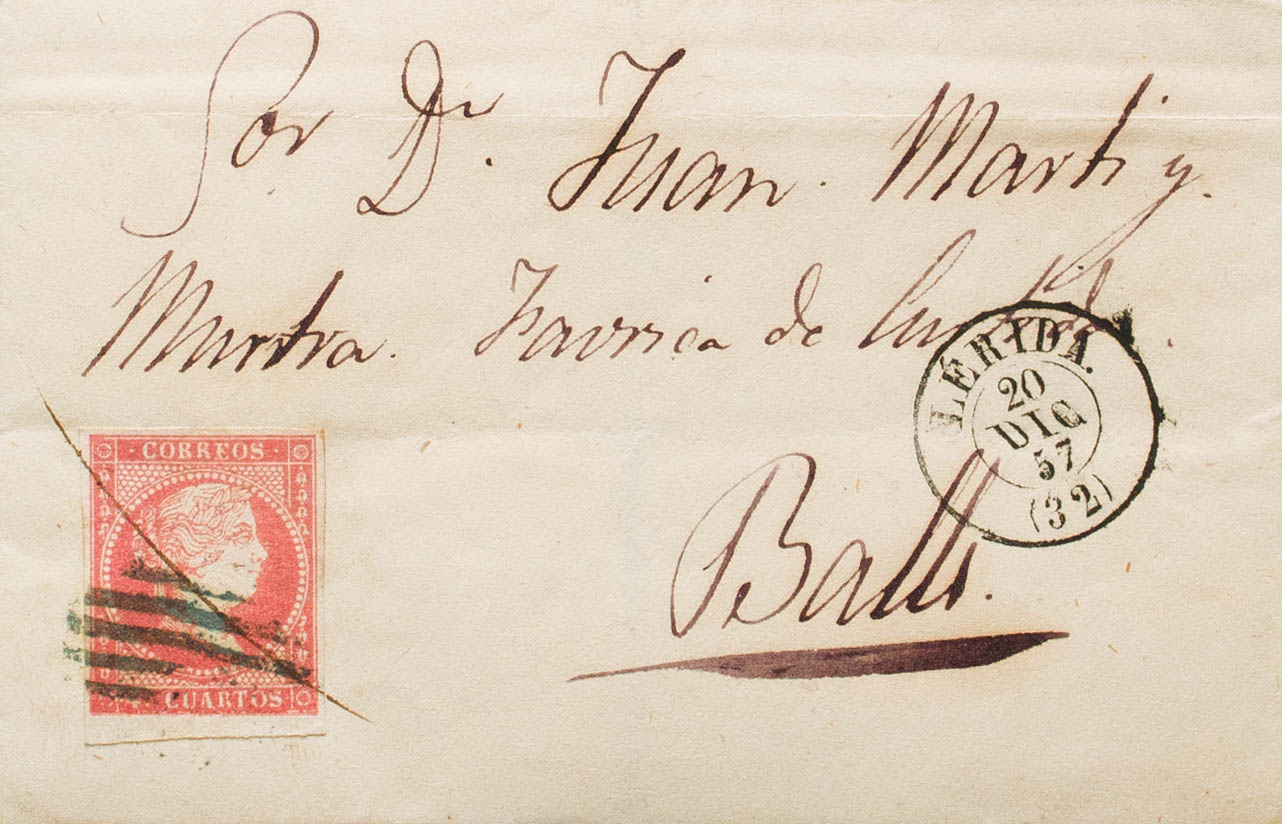 Sor Dn. Juan. Marti y.
Murtra. Favrica de Curtidos.
LÉRIDA.
20
DIC
57
(32)
Balls.
CORREOS
CUARTOS